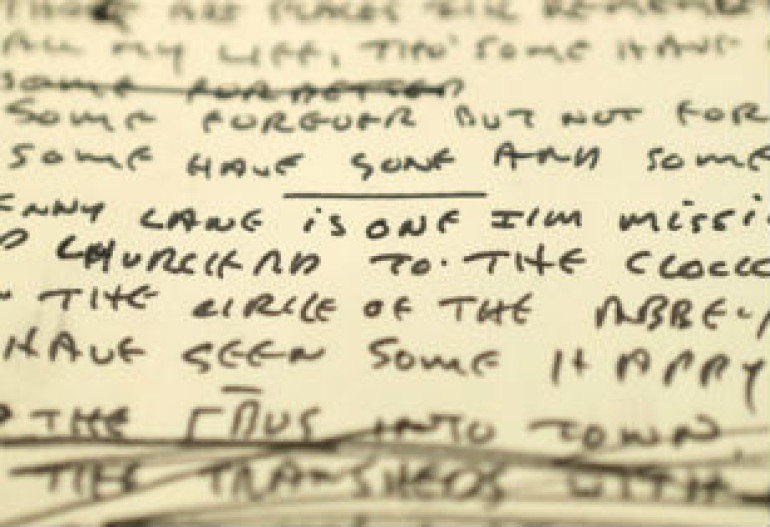 THOSE ARE PLACES I'LL REMEMBE
ALL MY LIFE, THO' SOME HAVE
SOME FOREVER BUT NOT FOR
SOME HAVE GONE AND SOME
ENNY LANE IS ONE I'M MISSI
CHURCH AND TO THE CLOCK
THE CIRCLE OF THE ABBEY
HAVE SEEN SOME HAPPY
THE BUS INTO TOWN
THE TRAMSHEDS WITH